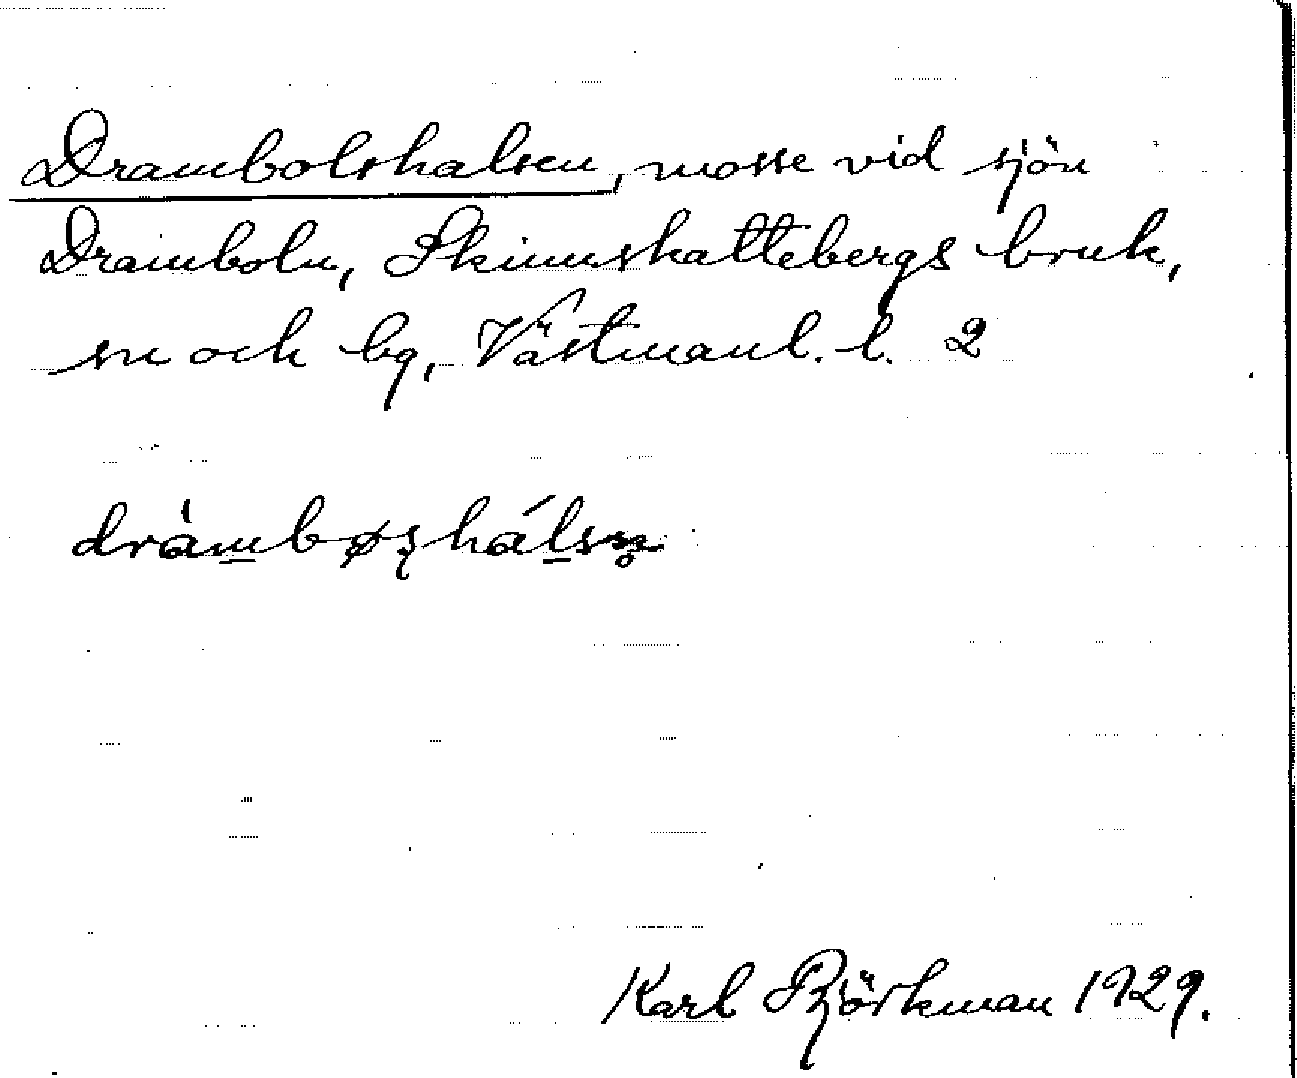 Drambolshalsen, mosse vid sjön
Dramboln, Skinnskattebergs bruk,
sn och bg, Västmanl. l. 2
dràmbøshálsn̥
Karl Björkman 1929.